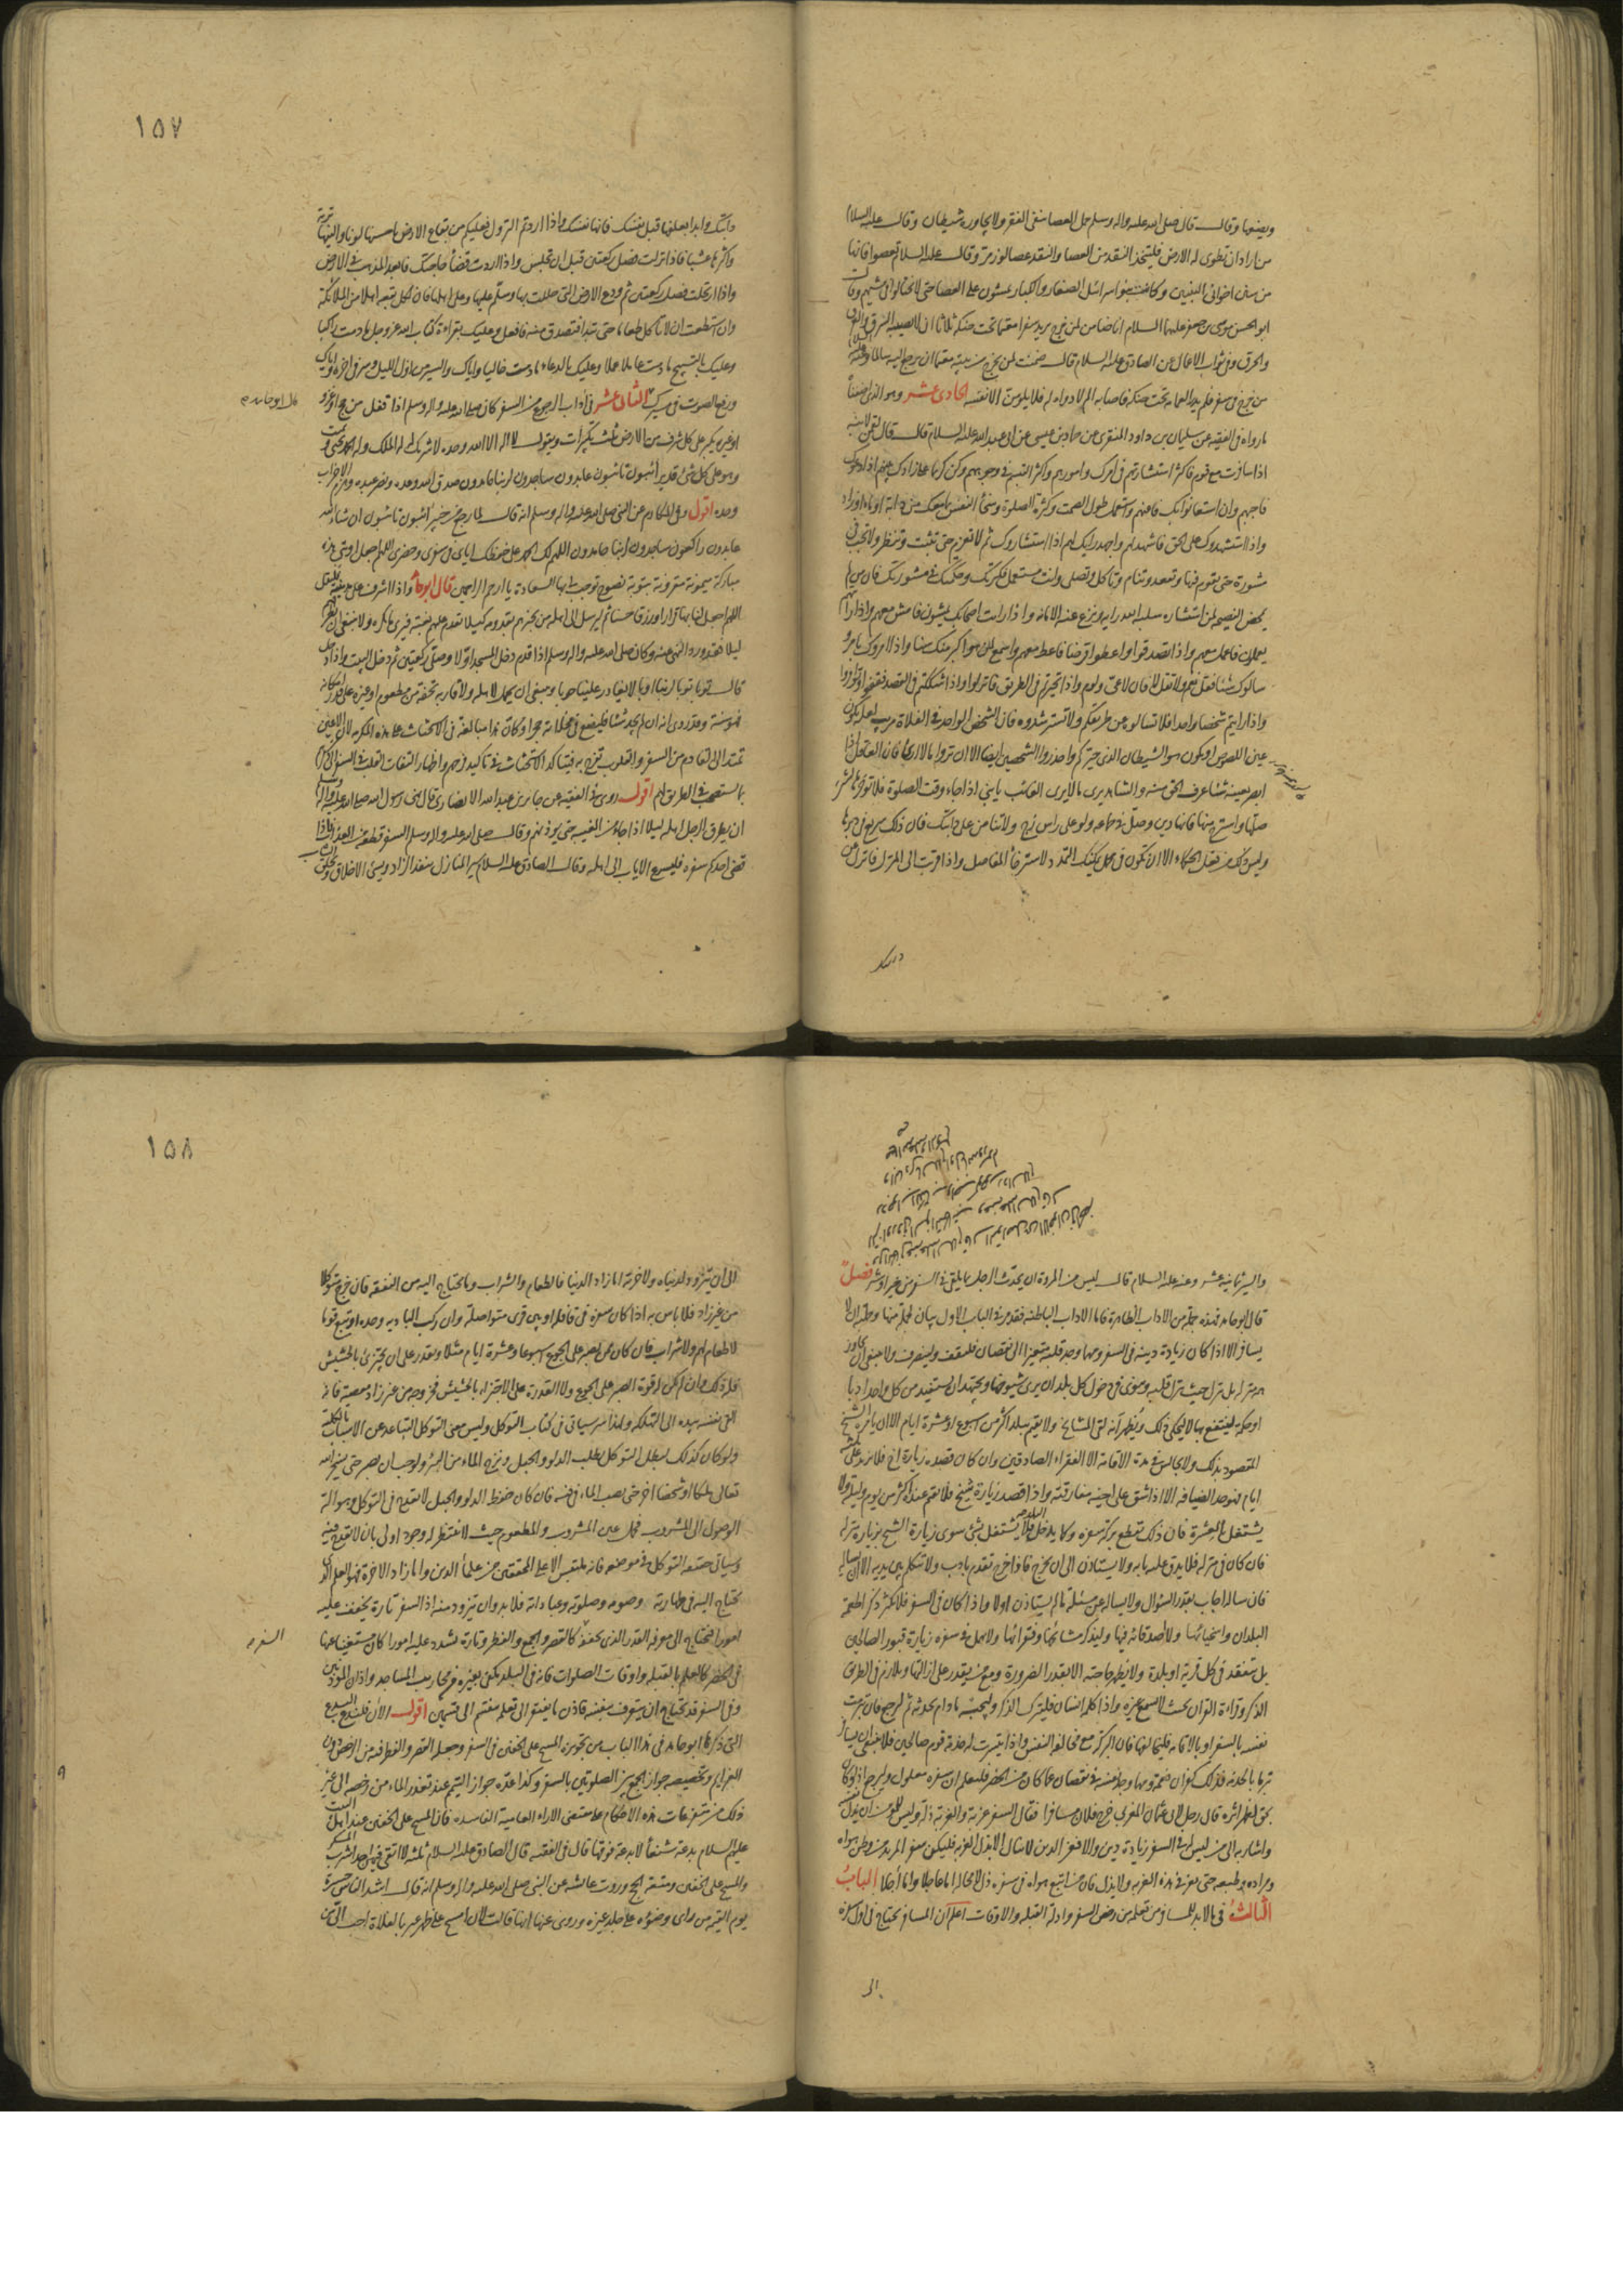 ويضعها وقال قال صلى الله عليه واله وسلم حمل العصا ينفى الفقر ولا يجاوره شيطان وقال عليه السلام
من اراد ان تطوى له الارض فليتخذ النقد من العصا والنقد عصا لوز مر وقال عليه السلام تعصوا فانها
من سنن اخوانى النبيين وكانت بنو اسرائيل الصغار والكبار يمشون على العصا حتى لا يختالوا فى مشيهم وقال
ابو الحسن موسى بن جعفر عليهما السلام انا ضامن لمن خرج يريد سفرا معتما تحت حنكه ثلاثا ان لا يصيبه السرق والغرق
والحرق وفى ثواب الاعمال عن الصادق عليه السلام قال ضمنت لمن يخرج من بيته معتما ان يرجع اليه سالما
من خرج فى سفر فلم يدر العمامة تحت حنكه فاصابه الم لا دواء له فلا يلومن الا نفسه الحادى عشر
ما رواه فى الفقيه عن سليمان بن داود المنقرى عن حماد بن عيسى عن ابى عبد الله عليه السلام قال قال لقمن لابنه
اذا سافرت مع قوم فاكثر استشارتهم فى امرك وامورهم واكثر التبسم فى وجوههم وكن كريما على زادك بينهم اذا دعوك
فاجبهم وان استعانوا بك فاعنهم واستعمل طول الصمت وكثرة الصلوة وسخاء النفس بما معك من دابة او ماء او زاد
واذا استشهدوك على الحق فاشهد لهم واجهد رايك لهم اذا استشاروك ثم لا تعزم حتى تثبت وتنظر ولا تجب فى
مشورة حتى تقوم فيها وتقعد وتنام وتاكل وتصلى وانت مستعمل فكرتك وحكمتك فى مشورتك فان من لم
يمحض النصيحة لمن استشاره سلبه الله رايه ونزع عنه الامانة واذا رايت اصحابك يمشون فامش معهم واذا رايتهم
يعملون فاعمل معهم واذا تصدقوا واعطوا قرضا فاعط معهم واسمع لمن هو اكبر منك سنا واذا امروك بامر
سألوك شيئا فقل نعم ولا تقل لا فان لا عى ولوم واذا تحيرتم فى الطريق فانزلوا واذا شككتم فى القصد فقفوا وتؤامروا
واذا رايتم شخصا واحدا فلا تسألوه عن طريقكم ولا تسترشدوه فان الشخص الواحد فى الفلاة مريب لعله يكون
عين اللصوص او يكون هو الشيطان الذى حيركم واحذروا الشخصين ايضا الا ان تروا ما لا ارى فان العاقل اذا
ابصر بعينه شيئا عرف الحق منه والشاهد يرى ما لا يرى الغائب يا بنى اذا جاء وقت الصلوة فلا تؤخرها لشئ
صلها واسترح منها فانها دين وصل فى جماعة ولو على راس زج ولا تنامن على دابتك فان ذلك سريع فى دبرها
وليس ذلك من فعل الحكماء الا ان تكون فى محمل يمكنك التمدد لاسترخاء المفاصل واذا قربت الى المنزل فانزل عن
دابتك
دابتك وابدا بعلفها قبل نفسك فانها نفسك واذا اردتم النزول فعليكم من بقاع الارض باحسنها لونا والينها تربة
واكثرها عشبا فاذا نزلت فصل ركعتين قبل ان تجلس واذا اردت قضاء حاجتك فابعد المذهب فى الارض
واذا ارتحلت فصل ركعتين ثم ودع الارض التى حللت بها وسلم عليها وعلى اهلها فان لكل بقعة اهلا من الملائكة
وان استطعت ان لا تاكل طعاما حتى تبدا فتصدق منه فافعل وعليك بقراءة كتاب الله عز وجل مادمت راكبا
وعليك بالتسبيح مادمت عاملا عملا وعليك بالدعاء مادمت خاليا واياك والسير من اول الليل وسر فى اخره واياك
ورفع الصوت فى مسيرك الثانى عشر فى اداب الرجوع من السفر كان صلى الله عليه واله وسلم اذا قفل من حج او غزو
قال ابو حامد
او غيره يكبر على كل شرف من الارض ثلث تكبيرات ويقول لا اله الا الله وحده لا شريك له له الملك وله الحمد
وهو على كل شئ قدير آئبون تائبون عابدون ساجدون لربنا حامدون صدق الله وعده ونصر عبده وهزم الاحزاب
وحده اقول وفى المكارم عن النبى صلى الله عليه واله وسلم انه قال لما رجع من خيبر آئبون تائبون ان شاء الله
عابدون راكعون ساجدون لربنا حامدون اللهم لك الحمد على حفظك اياى فى سفرى وحضرى اللهم اجعل اوبتى هذه
مباركة ميمونة مقرونة بتوبة نصوح توجب لى بها السعادة يا ارحم الراحمين قال ابو حامد واذا اشرف على مدينته فليقل
اللهم اجعل لنا بها قرارا ورزقا حسنا ثم ليرسل الى اهله من يخبرهم بقدومه كيلا يقدم عليهم بغتة فيرى ما يكره ولا ينبغى ان يطرقهم
ليلا فقد ورد النهى عنه وكان صلى الله عليه واله وسلم اذا قدم دخل المسجد اولا وصلى ركعتين ثم دخل البيت واذا دخل
قال توبا توبا لربنا اوبا لا يغادر علينا حوبا وينبغى ان يحمل لاهله ولاقاربه تحفة من مطعوم او غيره على قدر امكانه
تمتد الى القادم من السفر والقلوب تفرح به فيتاكد الاستحباب فى تاكيد فرحهم واظهار التفات القلب فى السفر الى ذكرهم
بما يستصحبه فى الطريق لهم اقول روى فى الفقيه عن جابر بن عبد الله الانصارى قال نهى رسول الله صلى الله عليه واله وسلم
ان يطرق الرجل اهله ليلا اذا جاء من الغيبة حتى يؤذنهم وقال صلى الله عليه واله وسلم السفر قطعة من العذاب فاذا
قضى احدكم سفره فليسرع الاياب الى اهله وقال الصادق عليه السلام سير المنازل ينفد الزاد ويسئ الاخلاق ويخلق الثياب
والسير ثمانية عشر وعنه عليه السلام قال ليس من المروة ان يحدث الرجل بما يلقى فى السفر من خير او شر فصل
قال ابو حامد فهذه جملة من الاداب الظاهرة فاما الاداب الباطنة فقد مر فى الباب الاول بيان جملة منها وجملته ان لا
يسافر الا اذا كان زيادة دينه فى السفر ومهما وجد قلبه متغيرا الى نقصان فليقف ولينصرف ولا ينبغى ان يجاوز
همه منزله بل ينزل حيث ينزل قلبه وينوى فى دخول كل بلد ان يرى شيوخها ويجتهد ان يستفيد من كل واحد ادبا
او حكمة لينتفع بها لا ليحكى ذلك ويظهر انه لقى المشايخ ولا يقيم ببلد اكثر من اسبوع او عشرة ايام الا ان يامره الشيخ
المقصود بذلك ولا يجالس فى مدة الاقامة الا الفقراء الصادقين وان كان قصده زيارة اخ فلا يزيد على ثلثة
ايام فهو حد الضيافة الا اذا شق على اخيه مفارقته واذا قصد زيارة شيخ فلا يقيم عنده اكثر من يوم وليلة ولا
يشتغل بالعشرة فان ذلك يقطع بركة سفره وكما يدخل بلدا لا يشتغل بشئ سوى زيارة الشيخ بزيارة منزله
فان كان فى منزله فلا يدق عليه بابه ولا يستاذن الى ان يخرج فاذا خرج تقدم بادب ولا يتكلم بين يديه الا ان يساله
فان ساله اجاب بقدر السؤال ولا يساله عن مسئلة ما لم يستاذن اولا واذا كان فى السفر فلا يكثر ذكر اطعمة
البلدان واسخيائها ولا اصدقائه فيها وليذكر مشائخها وفقرائها ولا يهمل فى سفره زيارة قبور الصالحين
بل يتفقد فى كل قرية او بلدة ولا يظهر حاجته الا بقدر الضرورة ومع من يقدر على ازالتها ويلازم فى الطريق
الذكر وقراءة القران بحيث لا يسمع غيره واذا كلمه انسان فليترك الذكر وليجبه مادام يحدثه ثم ليرجع فان تبرمت
نفسه بالسفر او بالاقامة فليخالفها فان البركة مع مخالفة النفس واذا تيسرت له خدمة قوم صالحين فلا ينبغى ان يسافر
تبرما بالخدمة فذلك كفران نعمة ومهما وجد نفسه فى نقصان عما كان من الحضر فليعلم ان سفره معلول وليرجع
لظهر اثره قال رجل لابى عثمان المغربى خرج فلان مسافرا فقال السفر غربة والغربة ذلة وليس للمؤمن ان يذل نفسه
واشار به الى من ليس له فى السفر زيادة دين والا فعز الدين لا ينال الا بذل الغربة فليكن سفر المريد من وطن هواه
ومراده وطبعه حتى يعز فى هذه الغربة ولا يذل فان من اتبع هواه فى سفره ذل لا محالة اما عاجلا واما آجلا الباب
الثالث فى ما لابد للمسافر من تعلمه من رخص السفر وادلة القبلة والاوقات اعلم ان المسافر يحتاج فى اول سفره
الى
الى ان يتزود لدنياه ولاخرته اما زاد الدنيا فالطعام والشراب وما يحتاج اليه من النفقة فان خرج متوكلا
من غير زاد فلا باس به اذا كان سفره فى قافلة او بين قرى متواصلة وان ركب البادية وحده او مع قوم
لا طعام لهم ولا شراب فان كان ممن يصبر على الجوع اسبوعا وعشرة ايام مثلا ويقدر على ان يجتزئ بالحشيش
فله ذلك وان لم يكن له قوة الصبر على الجوع ولا القدرة على الاجتزاء بالحشيش فخروجه من غير زاد معصية فانه
القى نفسه بيده الى التهلكة ولهذا سر سياتى فى كتاب التوكل وليس معنى التوكل التباعد عن الاسباب بالكلية
ولو كان كذلك لبطل التوكل بطلب الدلو والحبل ونزح الماء من البئر ولوجب ان يصبر حتى يسخر الله
تعالى ملكا او شخصا اخر حتى يصب الماء فى فيه فان كان حفظ الدلو والحبل لا يقدح فى التوكل وهو آلة
الوصول الى المشروب فحمل عين المشروب والمطعوم حيث لا ينتظر له وجود اولى بان لا يقدح فيه
وسياتى حقيقة التوكل فى موضعه فانه يلتبس الا على المحققين من علماء الدين واما زاد الاخرة فهو العلم الذى
يحتاج اليه فى طهارته وصومه وصلوته وعباداته فلا بد وان يتزود منه اذ السفر تارة يخفف عليه
امورا فيحتاج الى معرفة القدر الذى يخففه كالقصر والجمع والفطر وتارة يشدد عليه امورا كان مستغنيا عنها
السفر
فى الحضر كالعلم بالقبلة واوقات الصلوات فانه فى البلد يكفى بغيره من محاريب المساجد واذان المؤذنين
وفى السفر قد يحتاج ان يتعرف بنفسه فاذن ما يفتقر الى تعلمه ينقسم الى قسمين اقول الآن فلندع البدع
التى ذكرها ابو حامد فى هذا الباب من تجويزه المسح على الخفين فى السفر وجعله القصر والفطر فيه من الرخص دون
العزايم وتخصيصه جواز الجمع بين الصلوتين بالسفر وكذا عده جواز التيمم عند تعذر الماء من رخصه الى غير
ذلك من تشريعات هذه الاحكام على مقتضى الاراء العامية الفاسدة فان المسح على الخفين عند اهل البيت
عليهم السلام بدعة شنعاء لا بدعة فوقها قال فى الفقيه قال الصادق عليه السلام ثلثة لا اتقى فيهن احدا شرب المسكر
والمسح على الخفين ومتعة الحج وروت عائشة عن النبى صلى الله عليه واله وسلم انه قال اشد الناس حسرة
يوم القيمة من راى وضوءه على جلد غيره وروى عنها انها قالت لان امسح على ظهر عير بالفلاة احب الى من
١٥٧
١٥٨